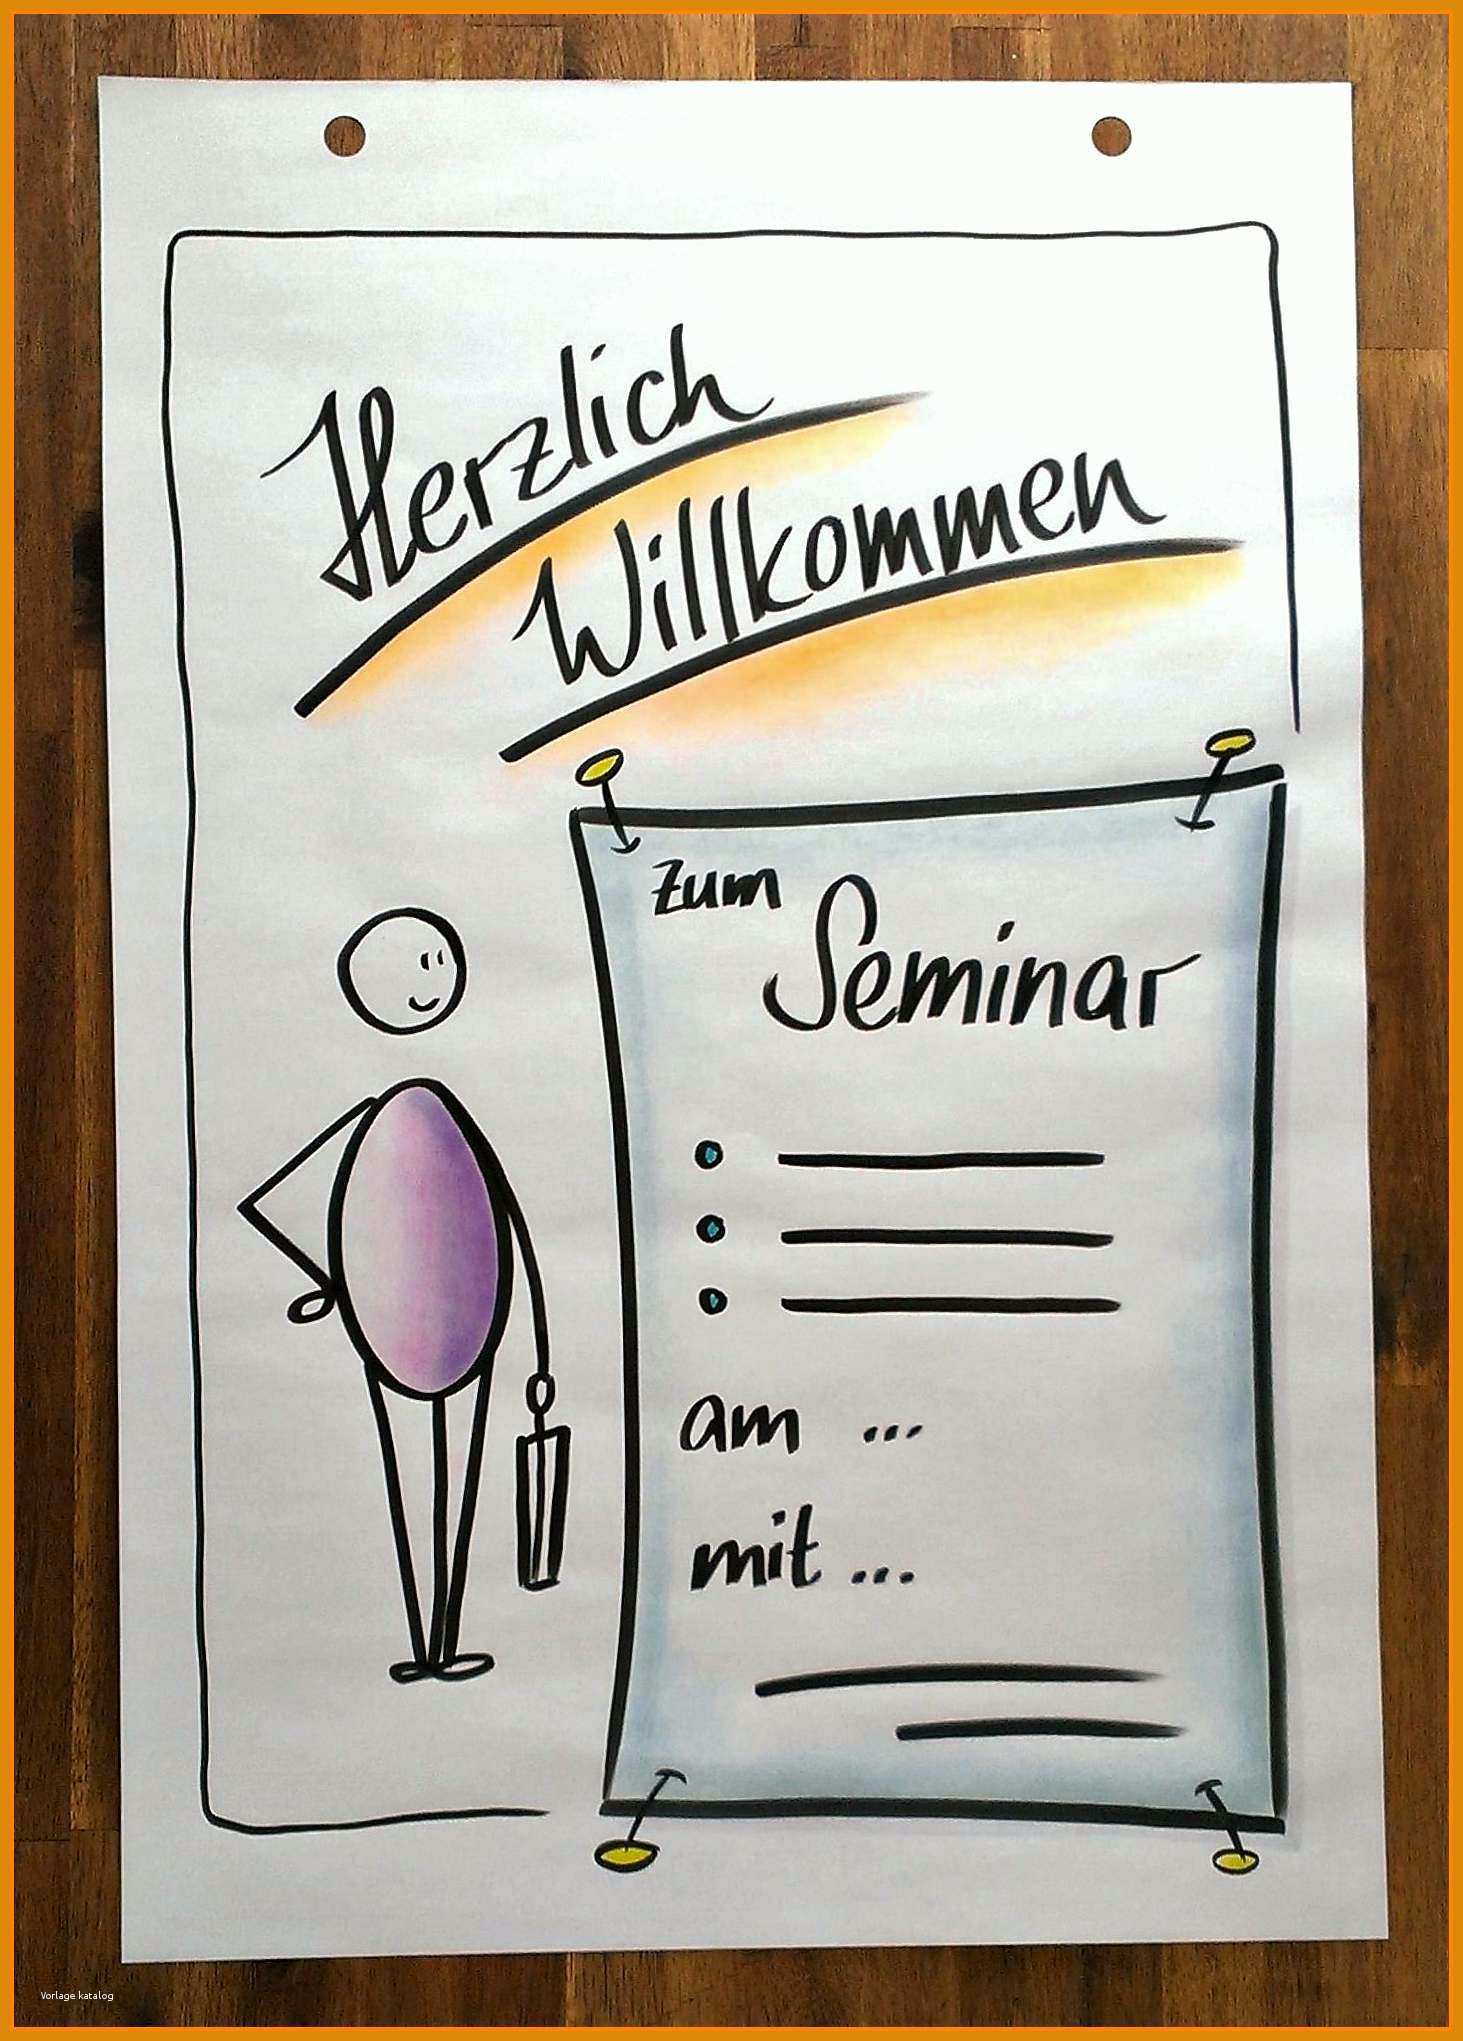 Herzlich
Willkommen
zum
Seminar
am ...
mit ...
Vorlage katalog